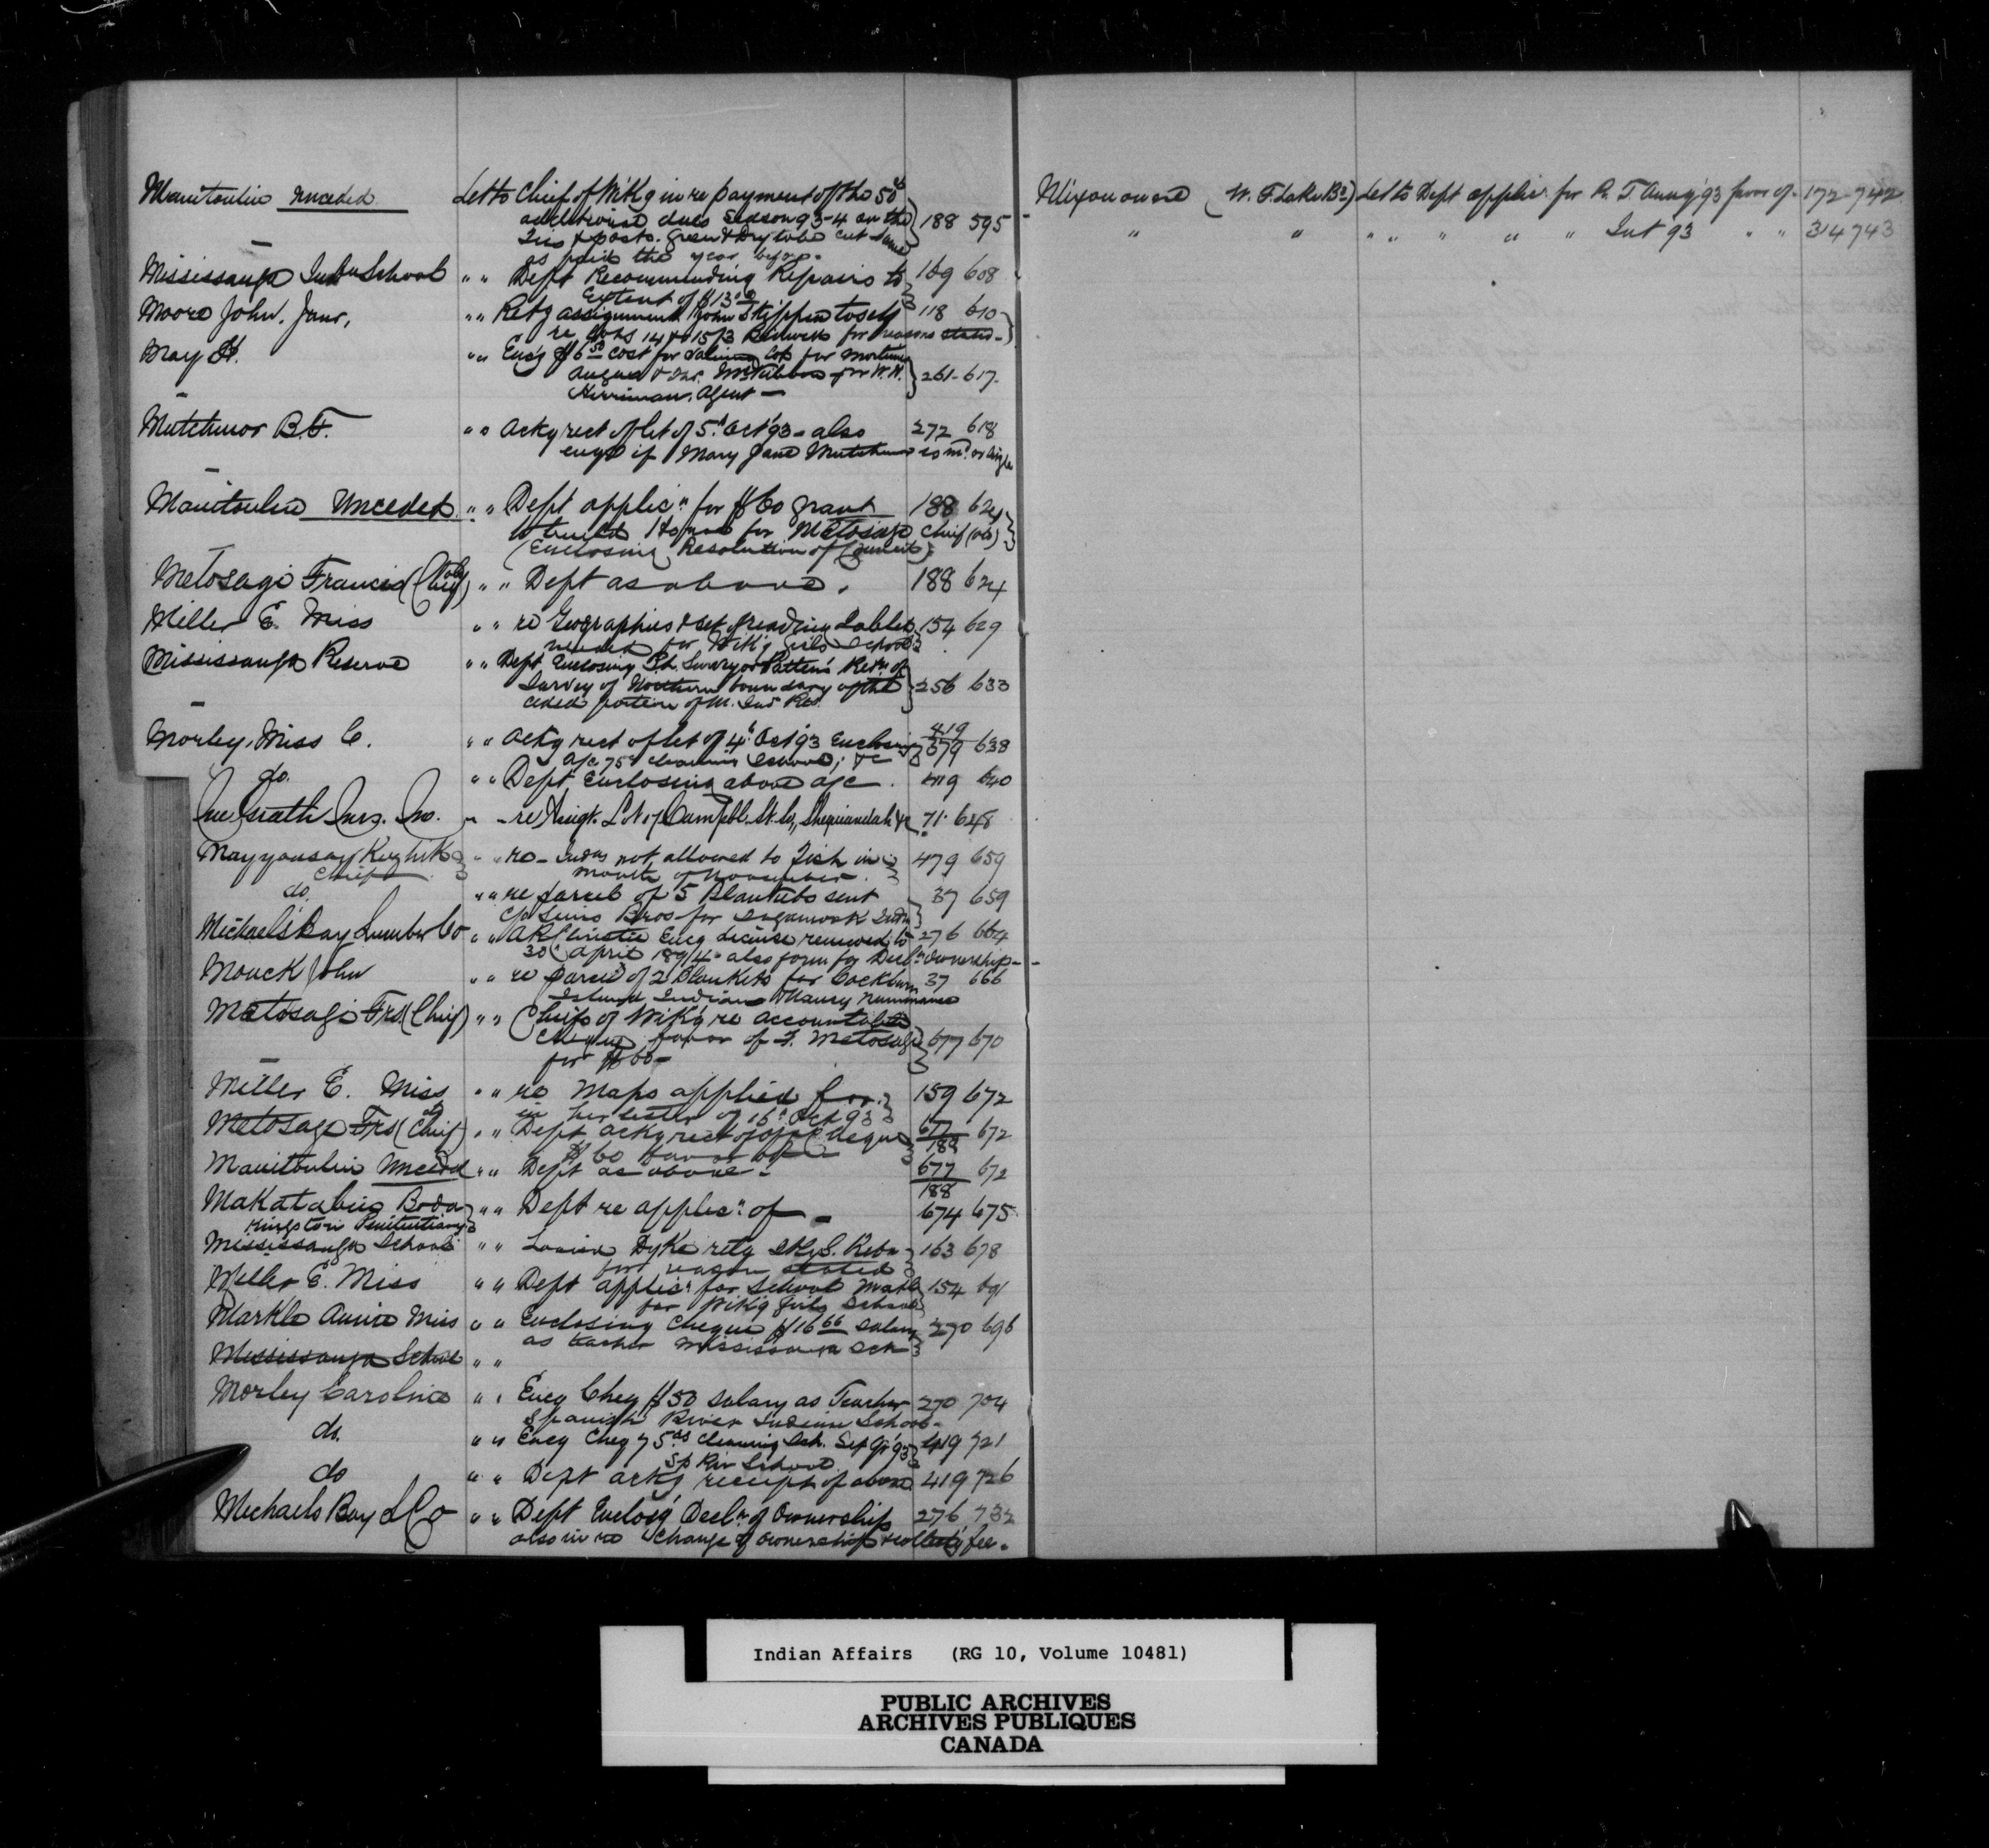 Manitoulin Unceded Let to Chief of Wik'g in re payment of the 50c
additional dues Season 93-4 on the 188 595
Ties & posts. Green & Dry to be cut same
as paid the year before.
Mississauga Indn School " " Dept Recommending Repairs to 169 608
Extent of $13.00
Moore John. Junr. " " Retg assignment John Skippen to self 118 610
re Lots 14 & 15/3 Bidwell for reasons stated -
May H. " " Encg $6.50 cost for
261 - 617 -
Agent -
Mutchmor B.F. " " Ackg rect of let of 5th Oct 93 - also 272 618
enqg if Mary Jane Mutchmor is md. or single
Manitoulin Unceded " " Dept applicn for $60 grant 188 624
to build House for Metosage Chief (old)
(Enclosing Resolution of Council)
Metosagi Francis (Old Chief) " " Dept as above. 188 624
Miller E. Miss " " re Geographies & set of reading Tablets 154 629
needed for Wik'g Girls School
Mississauga Reserve " " Dept Enclosing P.L. Surveyor Patten's Retn of
Survey of Northern boundary of the 256 633
ceded portion of M. Indn Res.
Morley, Miss C. " " Ackg rect of let of 4th Oct 93 Enclosing 419
379 638
a/c 75c cleaning School, &c
do. " " Dept Enclosing above a/c. 419 640
McGrath Mrs. Jno. " - re Assigt. L. N. 17 Campbell St. So., Sheguiandah &c 71. 648
" " re - Indns not allowed to Fish in 479 659
Chief month of November.
do. " " re parcel of 5 Blankets sent 37 659
c/o Sims Bros for
Michael's Bay Lumber Co " " Encg License renewed to 276 664
30th April 1894 - also form for Decln Ownership -
Monck John " " re parcel of 2 Blankets for Cockburn 37 666
Island Indians
Metosagi Frs (Chief) " " Chiefs of Wik'g re accountable
Cheque favor of F. Metosagi 677 670
for $60 -
Miller E. Miss " " re Maps applied for 159 672
in her letter of 16th Oct 93
Metosage Frs (old Chief) " " Dept ackg rect of offl Cheque 677/188 672
$60 favor of
Manitoulin Unceded " " Dept as above - 677/188 672
" " Dept re applicn of - 674 675
Kingston Penitentiary
Mississauga School " " Louisa Dyke retg Sk. S. Retn 163 678
for reason stated
Miller E. Miss " " Dept applicn for School Matl 154 691
for Wik'g Girls School
Markle Annie Miss " " Enclosing Cheque $16.66 Salary 270 696
as teacher Mississauga Sch
Mississauga School " "
Morley Caroline " " Encg Cheq $50 salary as Teacher 270 704
Spanish River Indian School -
do. " " Encg Cheq 75cts cleaning Sch. Sep Qr 93 419 721
Sp Riv School
do " " Dept ackg receipt of above 419 726
Michaels Bay L Co " " Dept Enclosg Decln of Ownership 276 732
also in re change of ownership & collectg fee.
Nixonoware (W. F. Lake Bd) Let to Dept applicn for R. T. Annuy '93 favor of - 172 - 742
" " " " " " " Int 93 " " 314 743
Indian Affairs (RG 10, Volume 10481)
PUBLIC ARCHIVES
ARCHIVES PUBLIQUES
CANADA